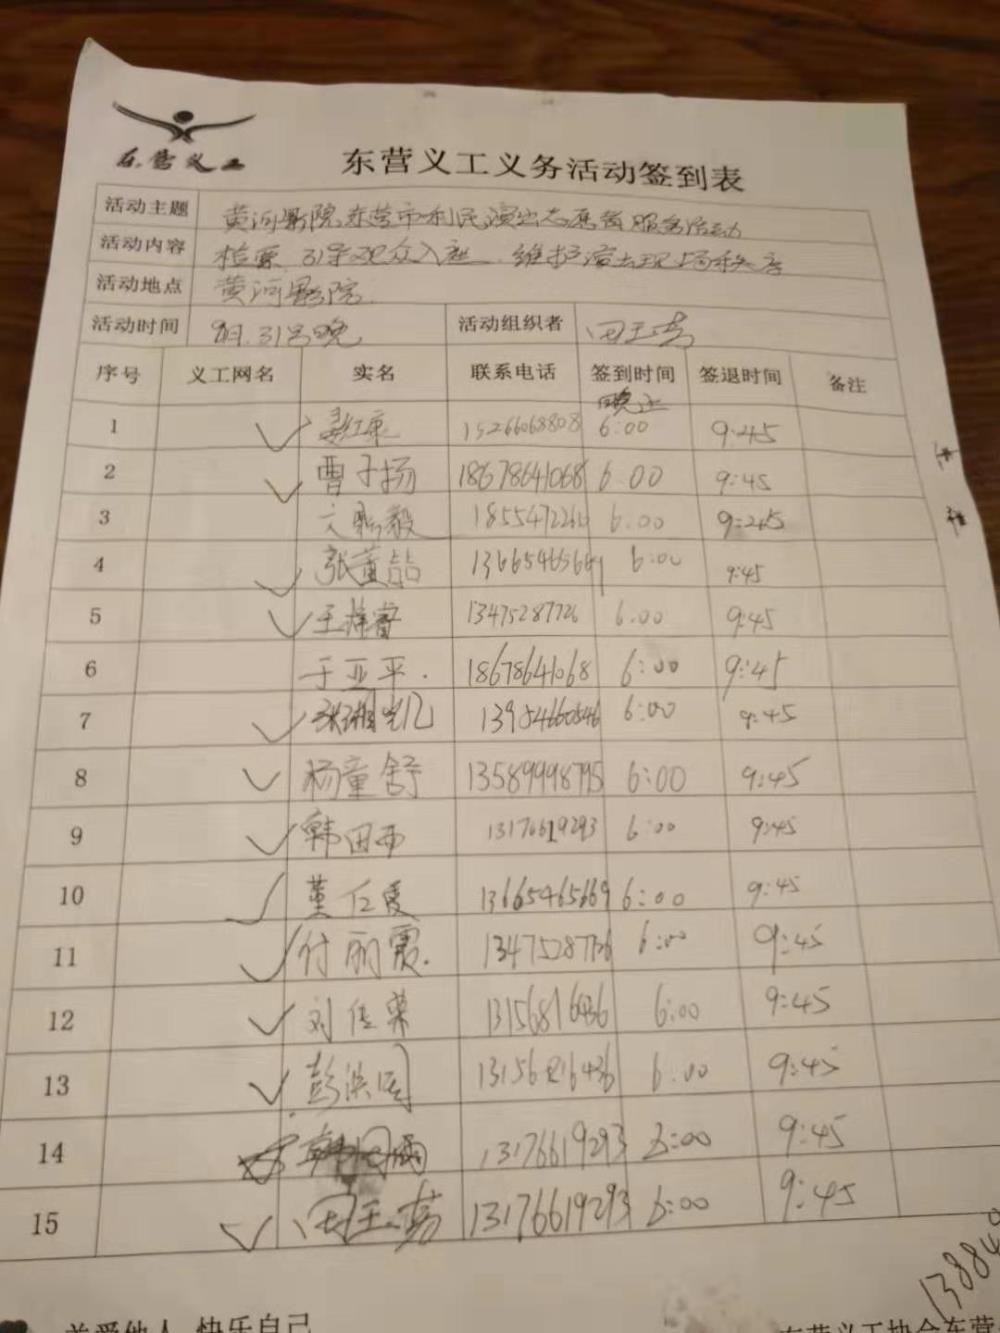 东营义工
东营义工义务活动签到表
活动主题 黄河影院东营市利民演出志愿者服务活动
活动内容 检票 引导观众入座 维护演出现场秩序
活动地点 黄河影院
活动时间 31号晚 活动组织者
序号 义工网名 实名 联系电话 签到时间 签退时间 备注
晚上
1 15266068808 6:00 9:45
2 曹子扬 18678641068 6:00 9:45
3 6:00 9:45
4 张董喆 6:00 9:45
5 王梓睿 13475287726 6:00 9:45
6 于亚平 18678641068 6:00 9:45
7 13954660546 6:00 9:45
8 杨童舒 13589998795 6:00 9:45
9 韩田雨 13176619293 6:00 9:45
10 董任爱 13665465669 6:00 9:45
11 付丽霞 13475287726 6:00 9:45
12 刘佳荣 13156816436 6:00 9:45
13 彭洪同 13156816436 6:00 9:45
14 13176619293 6:00 9:45
15 13176619293 6:00 9:45
13884
关爱他人 快乐自己
东营义工协会东营